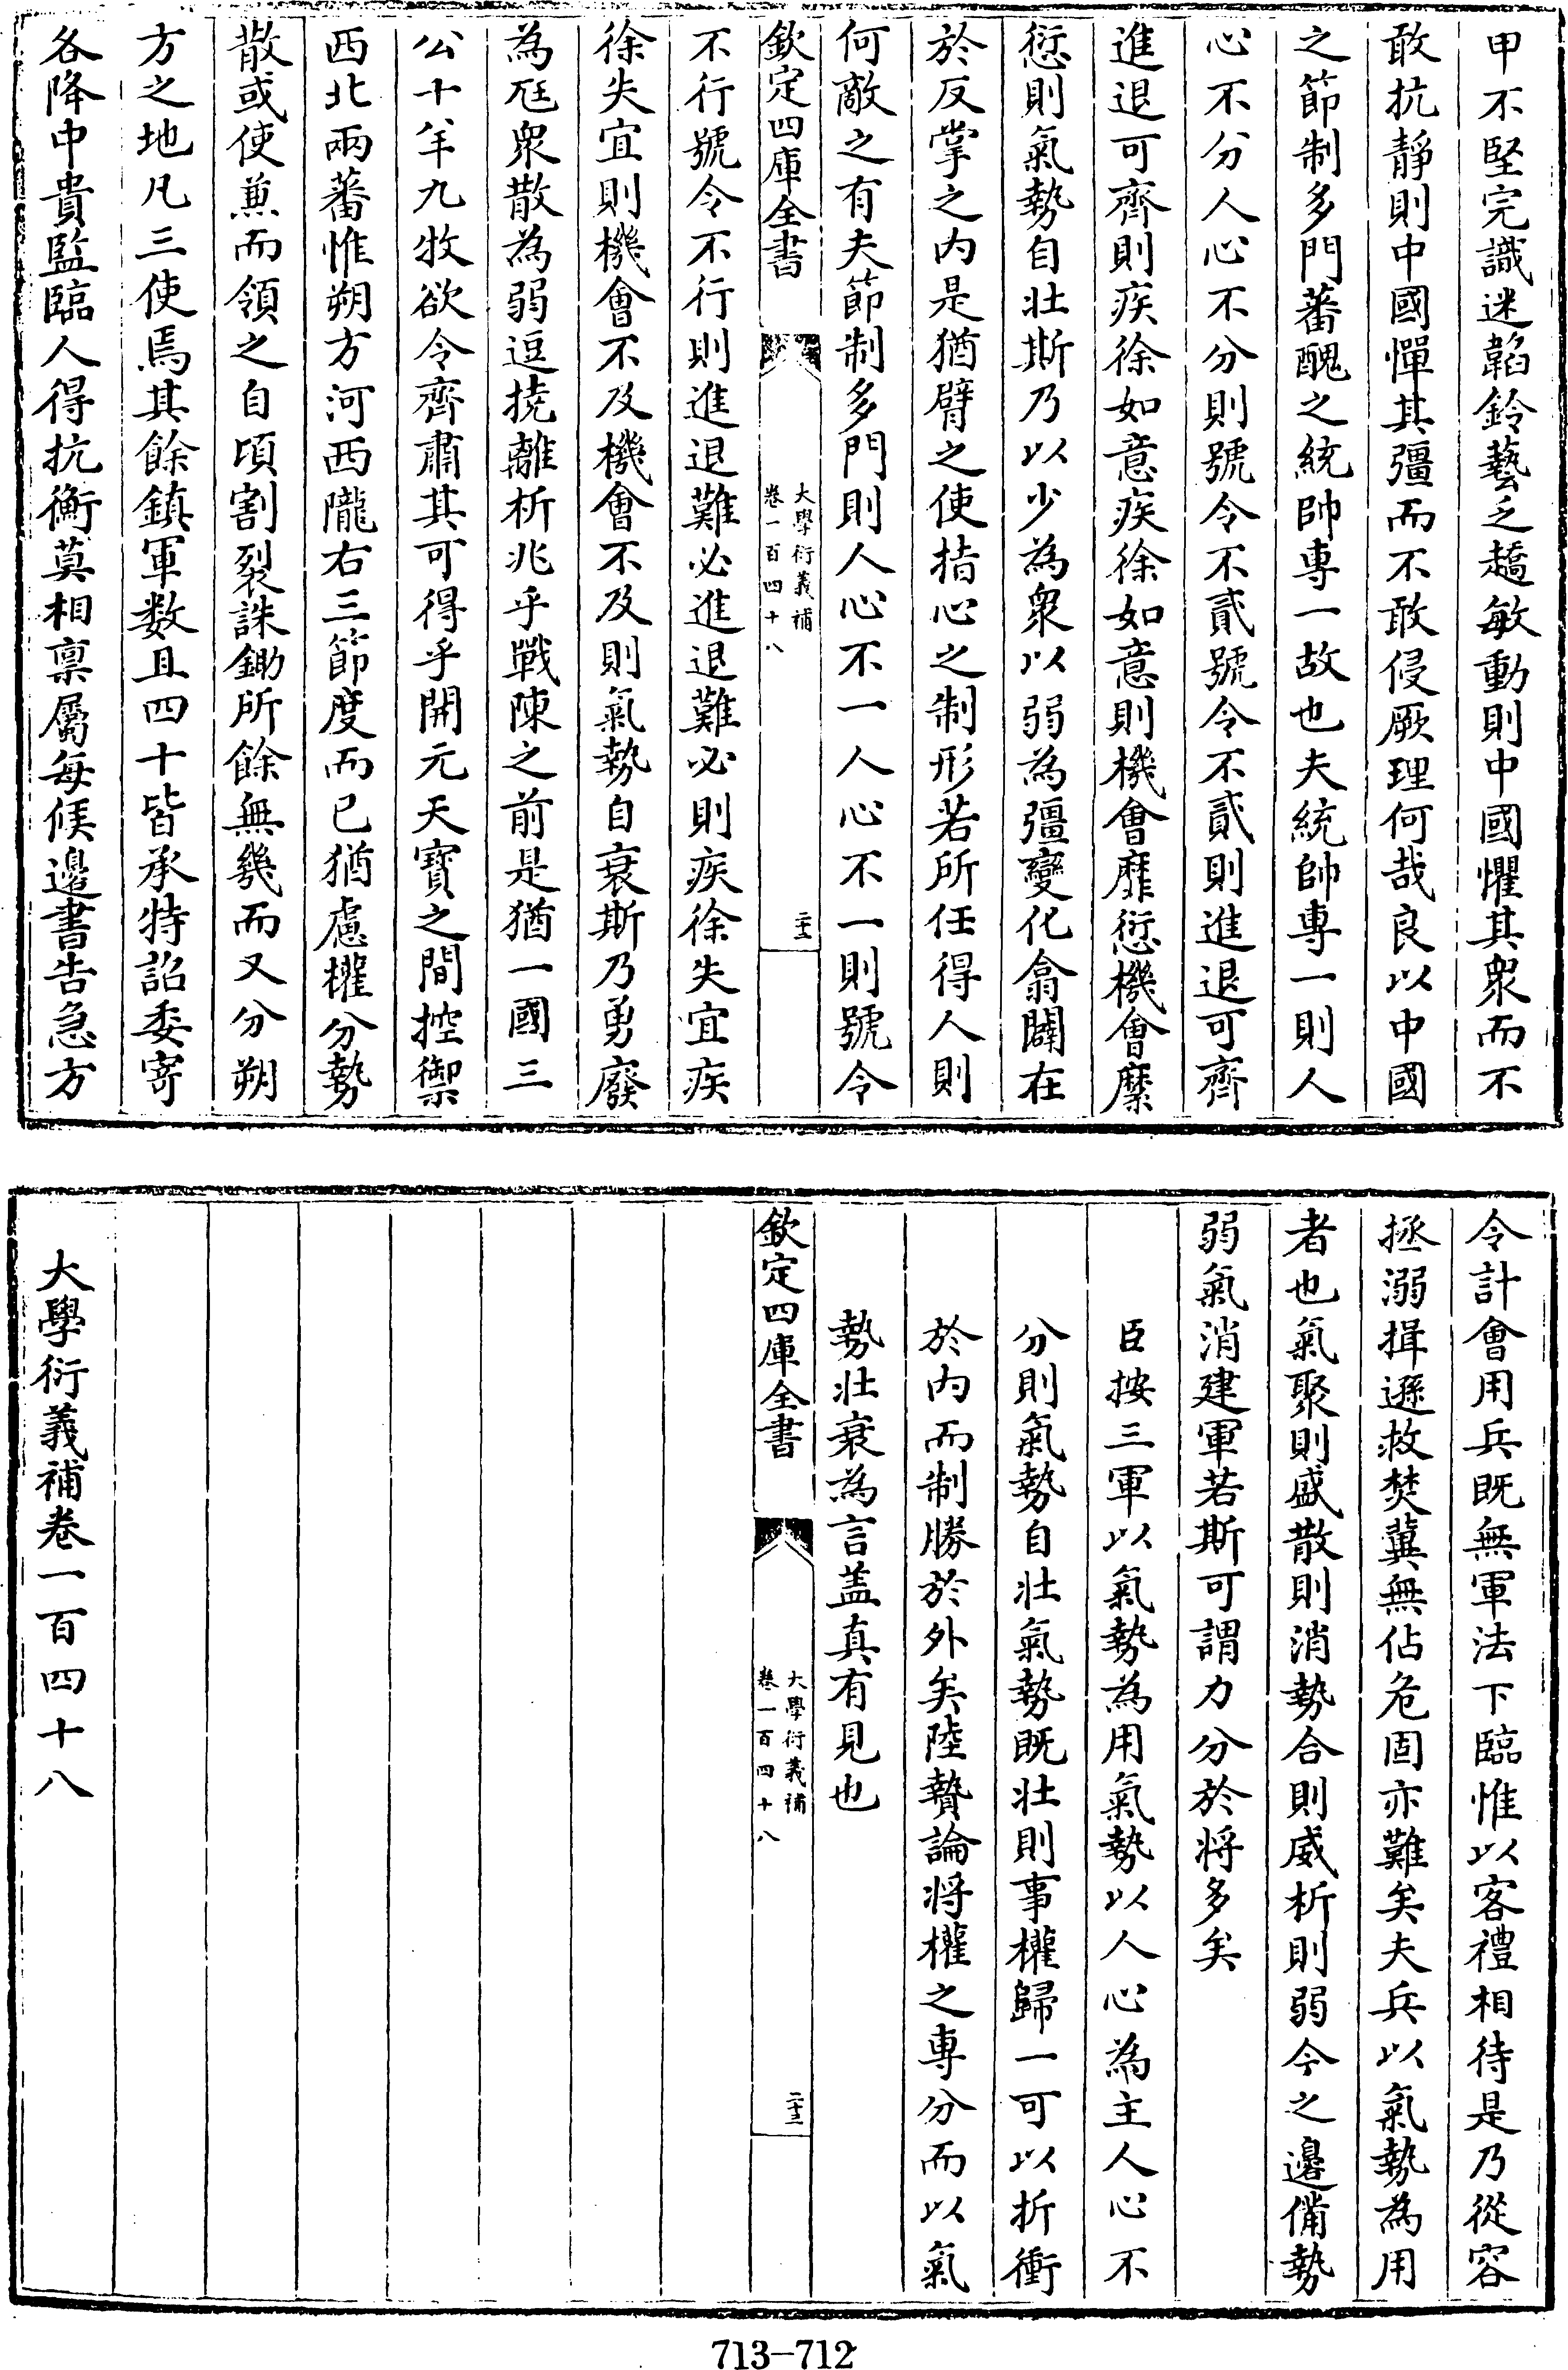 甲不堅完識迷韜鈐藝乏趫敏動則中國懼其衆而不
敢抗靜則中國憚其彊而不敢侵厥理何哉良以中國
之節制多門蕃醜之統帥專一故也夫統帥專一則人
心不分人心不分則號令不貳號令不貳則進退可齊
進退可齊則疾徐如意疾徐如意則機會靡愆機會靡
愆則氣勢自壯斯乃以少為衆以弱為彊變化翕闢在
於反掌之内是猶臂之使指心之制形若所任得人則
何敵之有夫節制多門則人心不一人心不一則號令
欽定四庫全書
大學衍義補
卷一百四十八
二十三
不行號令不行則進退難必進退難必則疾徐失宜疾
徐失宜則機會不及機會不及則氣勢自衰斯乃勇廢
為尫衆散為弱逗撓離析兆乎戰陳之前是猶一國三
公十羊九牧欲令齊肅其可得乎開元天寶之間控禦
西北兩蕃惟朔方河西隴右三節度而已猶慮權分勢
散或使兼而領之自頃割裂誅鋤所餘無幾而又分朔
方之地凡三使焉其餘鎮軍数且四十皆承特詔委寄
各降中貴監臨人得抗衡莫相禀屬每候邊書告急方
令計會用兵既無軍法下臨惟以客禮相待是乃從容
拯溺揖遜救焚冀無佔危固亦難矣夫兵以氣勢為用
者也氣聚則盛散則消勢合則威析則弱今之邊備勢
弱氣消建軍若斯可謂力分於将多矣
臣按三軍以氣勢為用氣勢以人心為主人心不
分則氣勢自壯氣勢既壯則事權歸一可以折衝
於内而制勝於外矣陸贄論将權之專分而以氣
勢壯衰為言盖真有見也
欽定四庫全書
大學衍義補
卷一百四十八
二十三
大學衍義補卷一百四十八
713-712